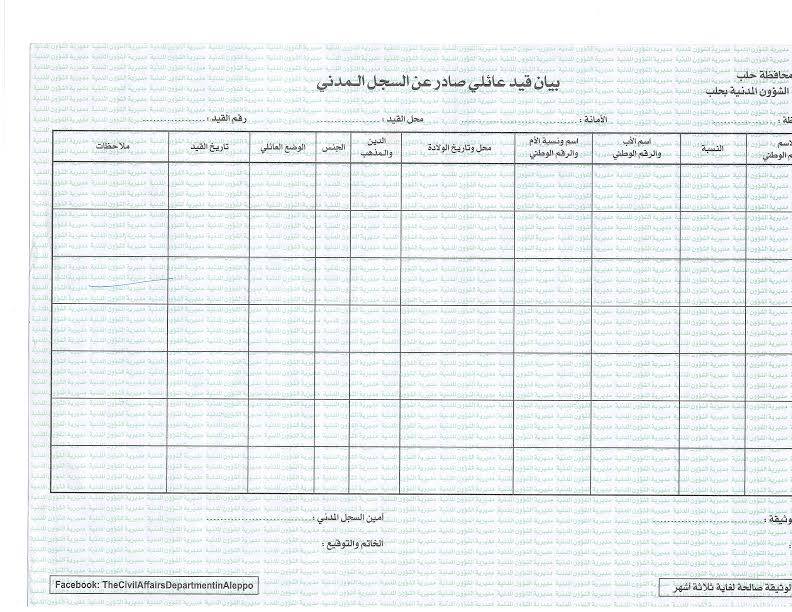 محافظة حلب
الشؤون المدنية بحلب
بيان قيد عائلي صادر عن السجل الـمـدني
الأمانة : ........................
محل القيد : ........................
رقم القيد : ........................
النسبة
اسم الأب
والرقم الوطني
اسم ونسبة الأم
والرقم الوطني
محل وتاريخ الولادة
الدين
والـمذهب
الجنس
الوضع العائلي
تاريخ القيد
ملاحظات
أمين السجل المدني : ........................
الخاتم والتوقيع :
الوثيقة صالحة لغاية ثلاثة أشهر
Facebook: TheCivilAffairsDepartmentinAleppo